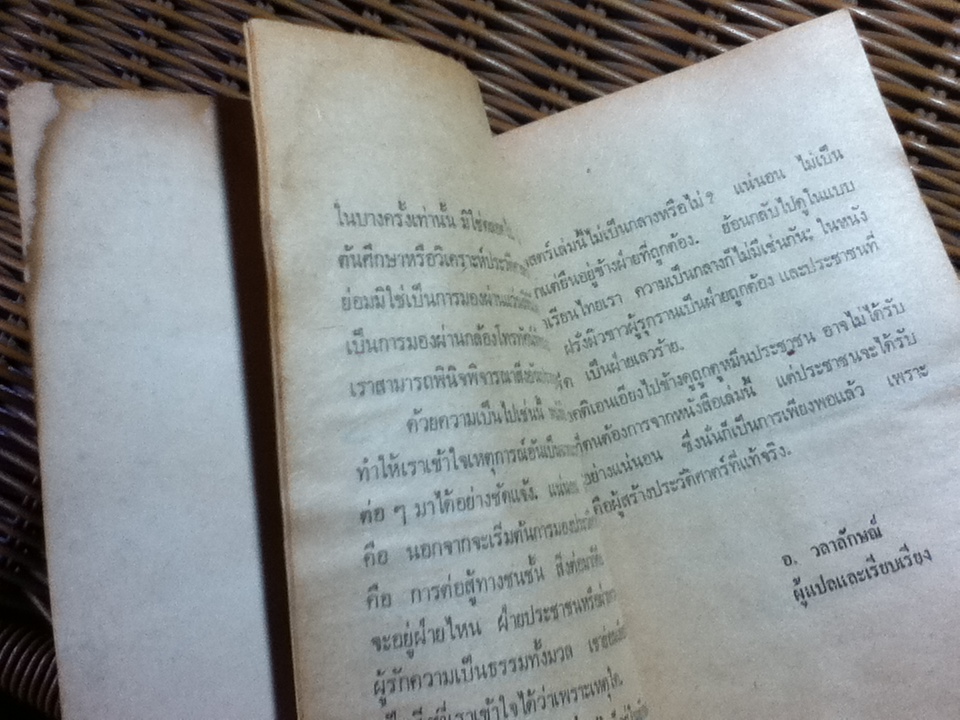 ในบางครั้งเท่านั้น มิใช่ตลอดไป
ต้นศึกษาหรือวิเคราะห์ประวัติศาสตร์
ย่อมมิใช่เป็นการมองผ่าน
เป็นการมองผ่านกล้องโทรทัศน์
เราสามารถพินิจพิจารณาสิ่งอัน
ด้วยความเป็นไปเช่นนั้น
ทำให้เราเข้าใจเหตุการณ์อันเป็น
ต่อ ๆ มาได้อย่างชัดแจ้ง. แน่นอน
คือ นอกจากจะเริ่มต้นการมองประวัติ
คือ การต่อสู้ทางชนชั้น สิ่งต่อมาก็คือ
จะอยู่ฝ่ายไหน ฝ่ายประชาชนหรือฝ่าย
ผู้รักความเป็นธรรมทั้งมวล เรา
ที่เราเข้าใจได้ว่าเพราะเหตุใด
สตร์เล่มนี้ไม่เป็นกลางหรือไม่ ? แน่นอน ไม่เป็น
แต่ยืนอยู่ข้างฝ่ายที่ถูกต้อง. ย้อนกลับไปดูในแบบ
เรียนไทยเรา ความเป็นกลางก็ไม่มีเช่นกัน; ในหนัง
ฝรั่งผิวขาวผู้รุกรานเป็นฝ่ายถูกต้อง และประชาชนที่
เป็นฝ่ายเลวร้าย.
คติเอนเอียงไปข้างดูถูกดูหมิ่นประชาชน อาจไม่ได้รับ
ที่ตนต้องการจากหนังสือเล่มนี้ แต่ประชาชนจะได้รับ
อย่างแน่นอน ซึ่งนั่นก็เป็นการเพียงพอแล้ว เพราะ
คือผู้สร้างประวัติศาตร์ที่แท้จริง.
อ. วลาลักษณ์
ผู้แปลและเรียบเรียง